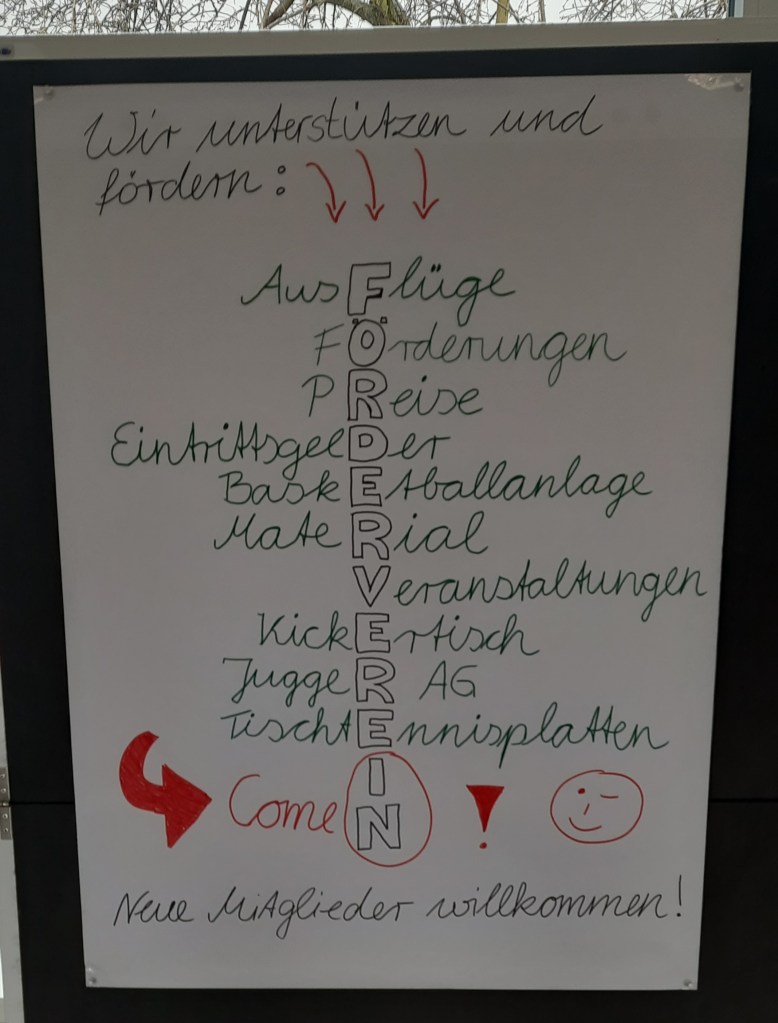 Wir unterstützen und
fördern:
AusFlüge
FÖrderungen
PReise
EintrittsgelDer
BaskEtballanlage
MateRial
Veranstaltungen
KickErtisch
JuggeR AG
TischtEnnisplatten
Come IN !
Neue Mitglieder willkommen!